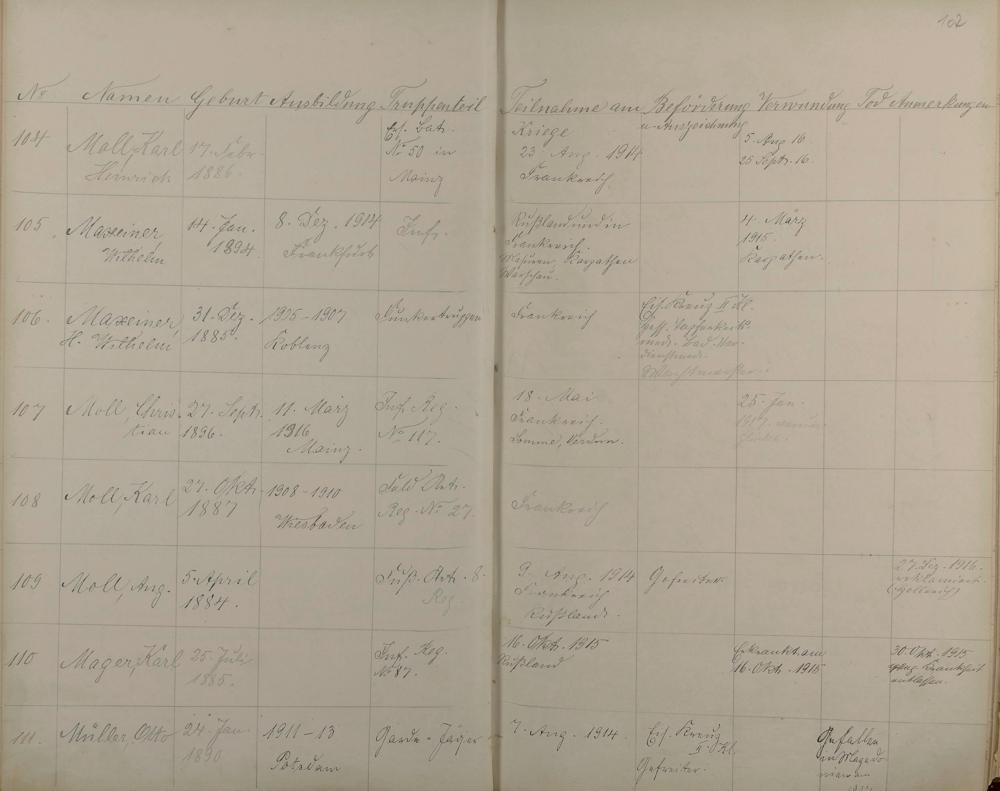 102
No Namen Geburt Ausbildung Truppenteil Teilnahme am Beförderung Verwundung Tod Anmerkungen
Kriege u. Auszeichnung
104 Moll, Karl 17. Febr. Ers. Batr. 23 Aug. 1914 5. Aug 16
Heinrich 1886. No 50 in Frankreich. 25 Sept. 16.
Mainz
105 Maxeiner 14. Jan. 8. Dez. 1914 Inf. Rußland und in 4. März
Wilhelm 1894. Frankreich. 1915.
Masuren, Karpathen Karpathen.
Warschau.
106. Maxeiner, 31. Dez. 1905-1907 Funkertruppen Frankreich Eis. Kreuz II Kl.
H. Wilhelm 1885. Koblenz
107 Moll, Chris- 27. Septr. 11. März Inf. Reg. 18. Mai 25. Jan.
tian 1896. 1916 No 117. Frankreich. 1917
Mainz. Somme, Verdun.
108 Moll, Karl 27. Okt. 1908-1910 Feld Art. Frankreich
1887 Wiesbaden Reg. No 27.
109 Moll, Aug. 5. April Fuß. Art. 8. 9. Aug. 1914 Gefreiter 27. Dez. 1916.
1884. Reg. Frankreich reklamiert
Rußland.
110 Mager, Karl 25. Juli Inf. Reg. 16. Okt. 1915 Erkrankt am 30. Okt. 1915
1885. No 87. Rußland 16. Okt. 1915 Krankheit
entlassen.
111. Müller, Otto 24. Jan. 1911-13 Garde-Jäger 7. Aug. 1914. Eis. Kreuz Gefallen
1890 Potsdam II Kl. in Mazedo-
Gefreiter.